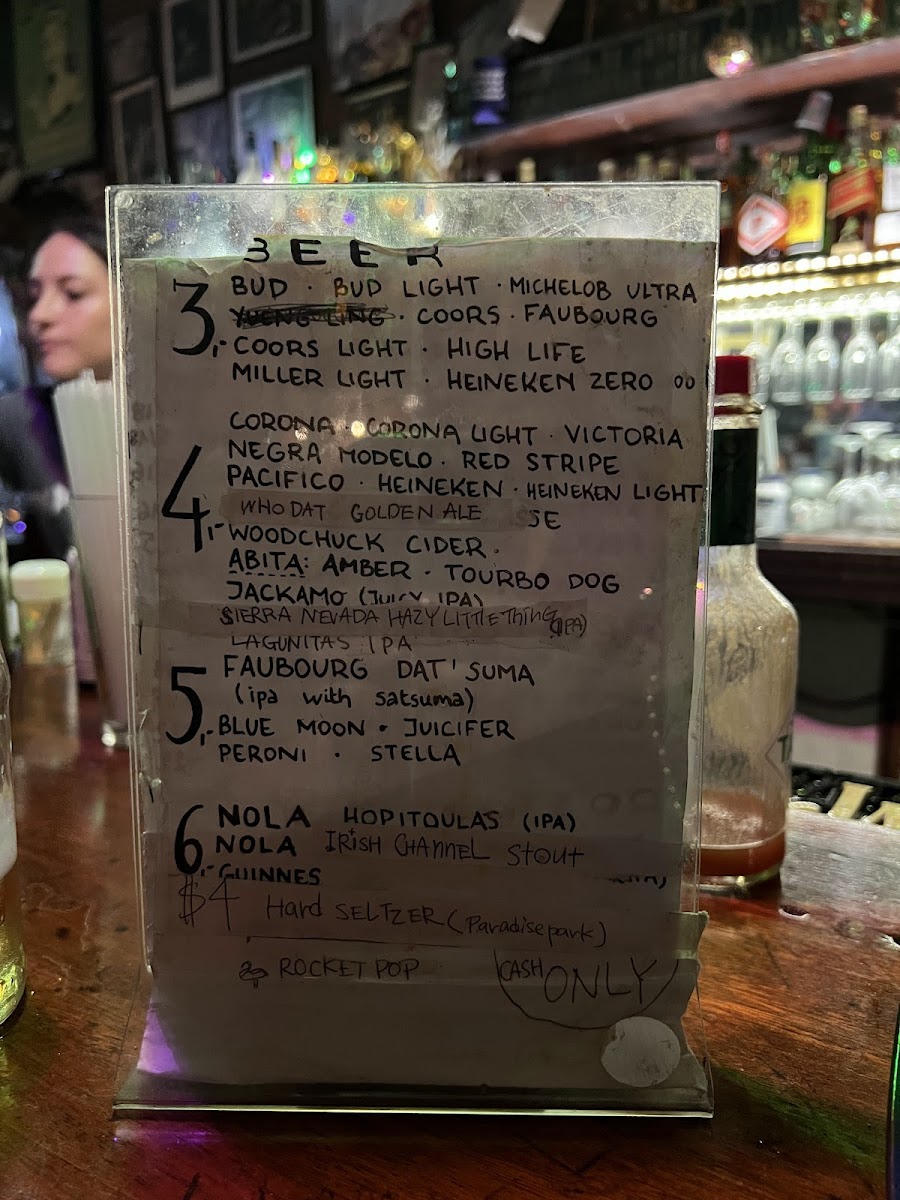 BEER
3,- BUD · BUD LIGHT · MICHELOB ULTRA
YUENG LING · COORS · FAUBOURG
COORS LIGHT · HIGH LIFE
MILLER LIGHT · HEINEKEN ZERO 00
4,- CORONA · CORONA LIGHT · VICTORIA
NEGRA MODELO · RED STRIPE
PACIFICO · HEINEKEN · HEINEKEN LIGHT
WHO DAT GOLDEN ALE SE
WOODCHUCK CIDER.
ABITA: AMBER · TOURBO DOG
JACKAMO (JUICY IPA)
SIERRA NEVADA HAZY LITTLE THING (IPA)
LAGUNITAS IPA
5,- FAUBOURG DAT' SUMA
(ipa with satsuma)
BLUE MOON · JUICIFER
PERONI · STELLA
6,- NOLA HOPITOULAS (IPA)
NOLA IRISH CHANNEL Stout
GUINNES
$4 Hard SELTZER (Paradise park)
ROCKET POP
CASH ONLY